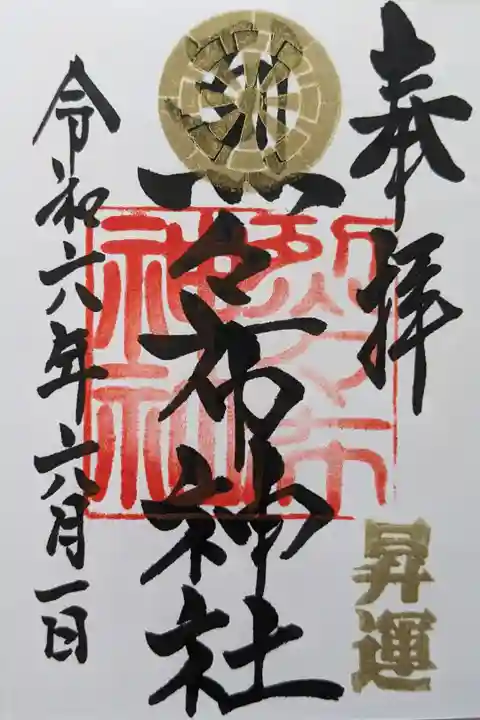 奉拝
昇運
烈々布神社
烈々布
神社
令和六年六月一日